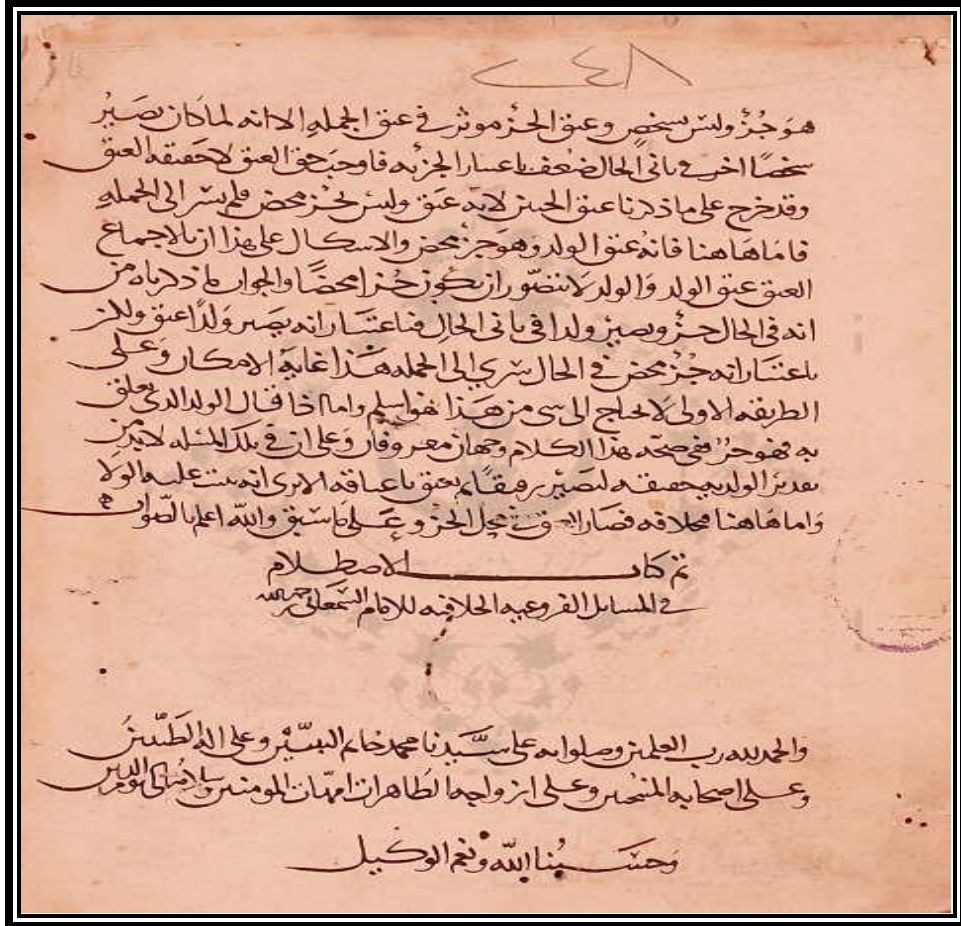 ٢٤٨
هو جزء وليس بشخص وعتق الجزء موثر في عتق الجملة الا انه لما كان يصير
شخصا اخر في ثاني الحال ضعف باعتبار الجزئية فاوجب حق العتق لا حقيقة العتق
وقد خرج على ما ذكرنا عتق الجنين لانه عتق وليس بجزء محض فلم يسر الى الجملة
فاما هاهنا فانه عتق الولد وهو جزء محض والاشكال على هذا ان بالاجماع
العتق عتق الولد والولد لا يتصور ان يكون جزءا محضا والجواب لما ذكرناه من
انه في الحال جزء ويصير ولدا في ثاني الحال فباعتبار انه يصير ولدا عتق
باعتبار انه جزء محض في الحال سري الى الجملة هذا غاية الامكان وعلى
الطريقة الاولى لا يحتاج الى شي من هذا فهو اسلم واما اذا قال الولد الذي يعلق
به فهو حر ففي صحة هذا الكلام وجهان معروفان وعلى ان في تلك المسئلة لا بد من
تقدير الولد به حقيقة ليصير رقيقا ثم يعتق باعتاقه الا يرى انه يثبت عليه الولا
واما هاهنا بخلافه فصار العتق في محل الجزء وعلى ما سبق والله اعلم بالصواب
تم كتاب الاصطلام
في المسايل الفروعية الخلافية للامام السمعاني رحمه الله
والحمد لله رب العلمين وصلواته على سيدنا محمد خاتم النبيين وعلى اله الطيبين
وعلى اصحابه المنتخبين وعلى ازواجه الطاهرات امهات المومنين
وحسبنا الله ونعم الوكيل